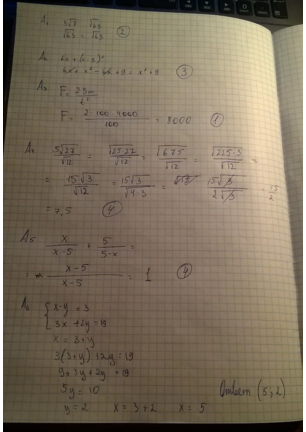 A₁ 3√7 √63
√63 = √63 (2)
A₂ 6x+(x-3)²
6x + x² - 6x + 9 = x² + 9 (3)
A₃ F =
F = 2·100·4000 / 100 = 8000 (1)
A₄ 5√27 / √12 = √25·27 / √12 = √675 / √12 = √225·3 / √12 =
= 15√3 / √12 = 15√3 / √4·3 = 15√3 / 2√3 = 15 / 2
= 7,5 (4)
A5 x / x-5 + 5 / 5-x =
x-5 / x-5 = 1 (4)
A₆ { x-y = 3
3x + 2y = 19
x = 3+y
3(3+y) + 2y = 19
9+3y+2y = 19
5y = 10
y = 2 x = 3+2 x = 5
Ответ (5;2)